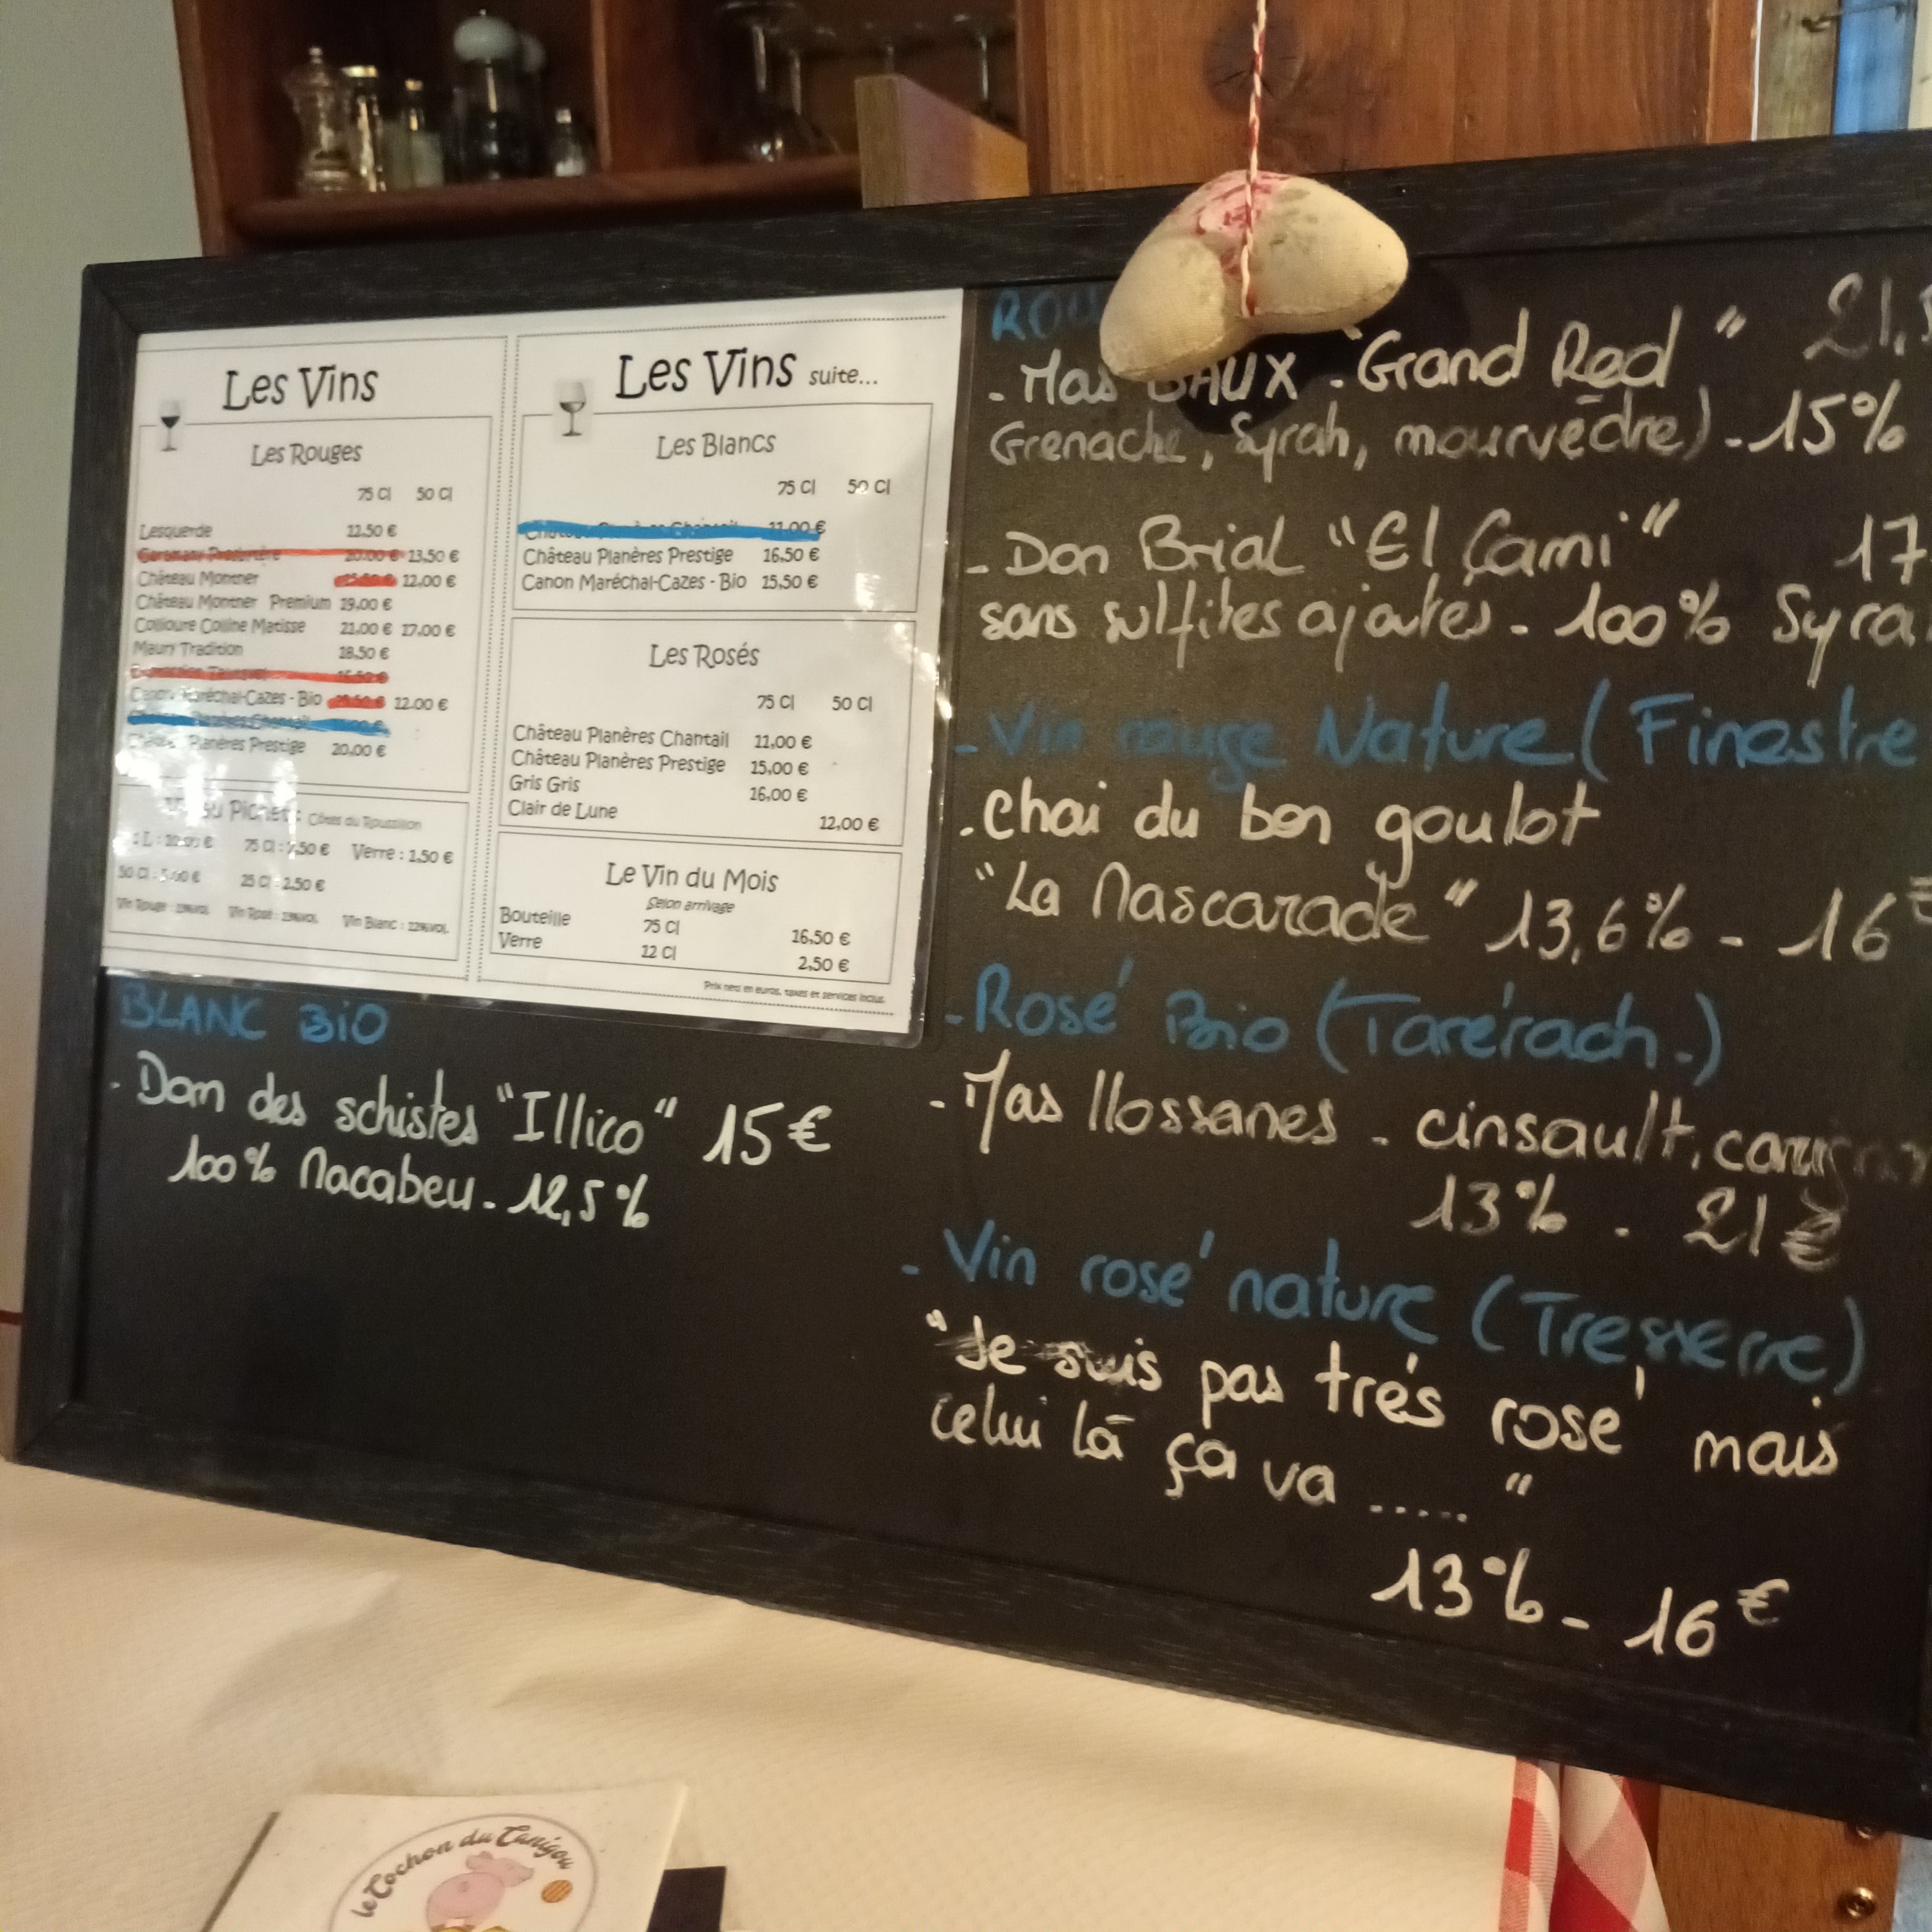 Les Vins
Les Rouges
75 Cl 50 Cl
Lesquerde 12,50 €
20,00 € 13,50 €
Château Montner 12,00 €
Château Montner Premium 19,00 €
Collioure Colline Matisse 21,00 € 17,00 €
Maury Tradition 18,50 €
Canon Maréchal-Cazes - Bio 12,00 €
Planères Prestige 20,00 €
au Pichet : Côtes du Roussillon
75 Cl : 7,50 € Verre : 1,50 €
50 Cl : 25 Cl : 2,50 €
Vin Rouge : Vin Rosé : Vin Blanc : 12%vol.
Les Vins suite...
Les Blancs
75 Cl 50 Cl
11,00 €
Château Planères Prestige 16,50 €
Canon Maréchal-Cazes - Bio 15,50 €
Les Rosés
75 Cl 50 Cl
Château Planères Chantail 11,00 €
Château Planères Prestige 15,00 €
Gris Gris 16,00 €
Clair de Lune 12,00 €
Le Vin du Mois
Selon arrivage
Bouteille 75 Cl 16,50 €
Verre 12 Cl 2,50 €
Prix nets en euros, taxes et services inclus.
BLANC BIO
- Dom des schistes "Illico" 15€
100% Macabeu - 12,5%
- Mas BAUX - "Grand Red"
Grenache, Syrah, mourvèdre) - 15%
- Dom Brial "El Cami" 17
sans sulfites ajoutés - 100% Syra
- Vin rouge Nature (Finestre
- Chai du bon goulot
"La Mascarade" 13,6% - 16€
- Rosé Bio (Tarérach.)
- Mas llossanes - cinsault, carignan
13% - 21€
- Vin rosé nature (Tresserre)
"Je suis pas trés rosé mais
celui là ça va ....."
13% - 16€
le Cochon du Canigou